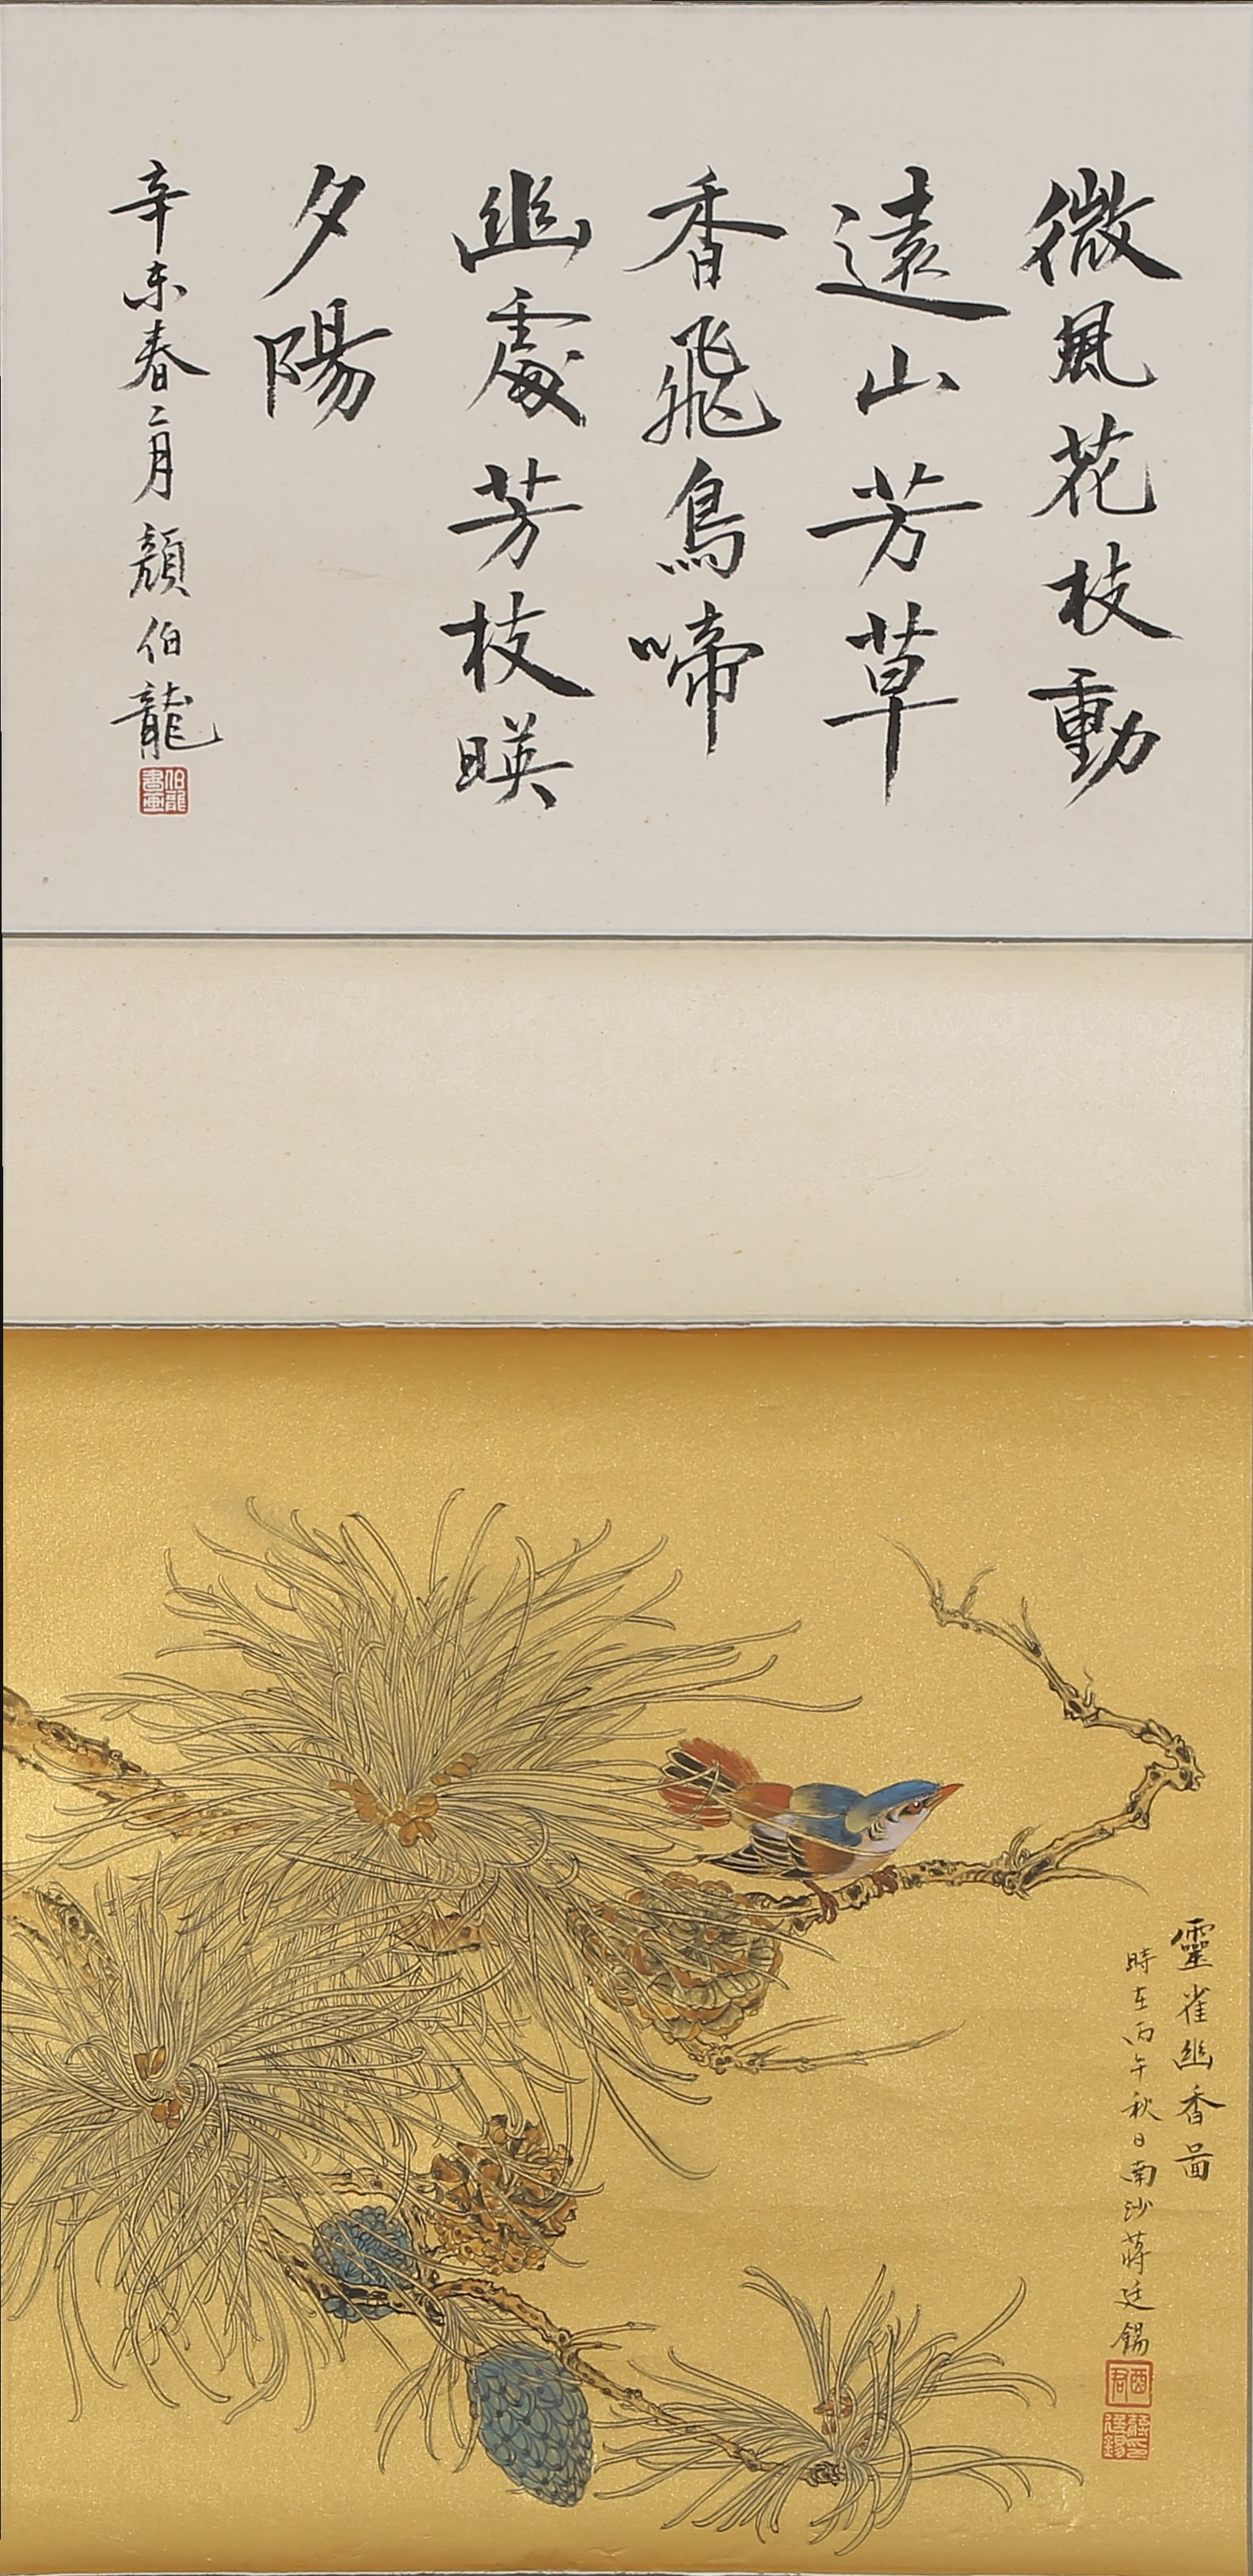 微風花枝動
遠山芳草
香飛鳥啼
幽處芳枝暎
夕陽
辛未春二月 顏伯龍
伯龍書畫
靈雀幽香圖
時在丙午秋日南沙蔣廷錫
酉君
蔣廷錫印